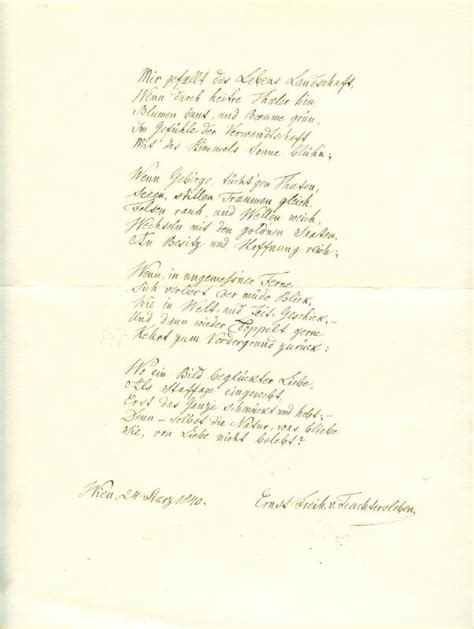 Mir gefällt des Lebens Landschaft,
Wenn durch heitre Thäler hin,
Blumen bunt, und Bäume grün,
Im Gefühle der Verwandtschaft
Mit des Himmels Sonne blühn;
Wenn Gebirge, tücht'gen Thaten,
Seeen, stillen Träumen gleich,
Felsen rauh, und Wellen weich,
Wechseln mit den goldnen Saaten,
An Besitz und Hoffnung reich;
Wenn, in ungemessner Ferne
Sich verliert der müde Blick,
Wie in Welt- und Zeit-Geschick,–
Und dann wieder doppelt gerne
Kehrt zum Vordergrund zurück:
Wo ein Bild beglückter Liebe,
Als Staffage eingewebt,
Erst das Ganze schmückt und hebt;–
Denn – selbst die Natur, was bliebe
Sie, von Liebe nicht belebt?
Wien, 24 März 1840.
Ernst Freih. v. Feuchtersleben